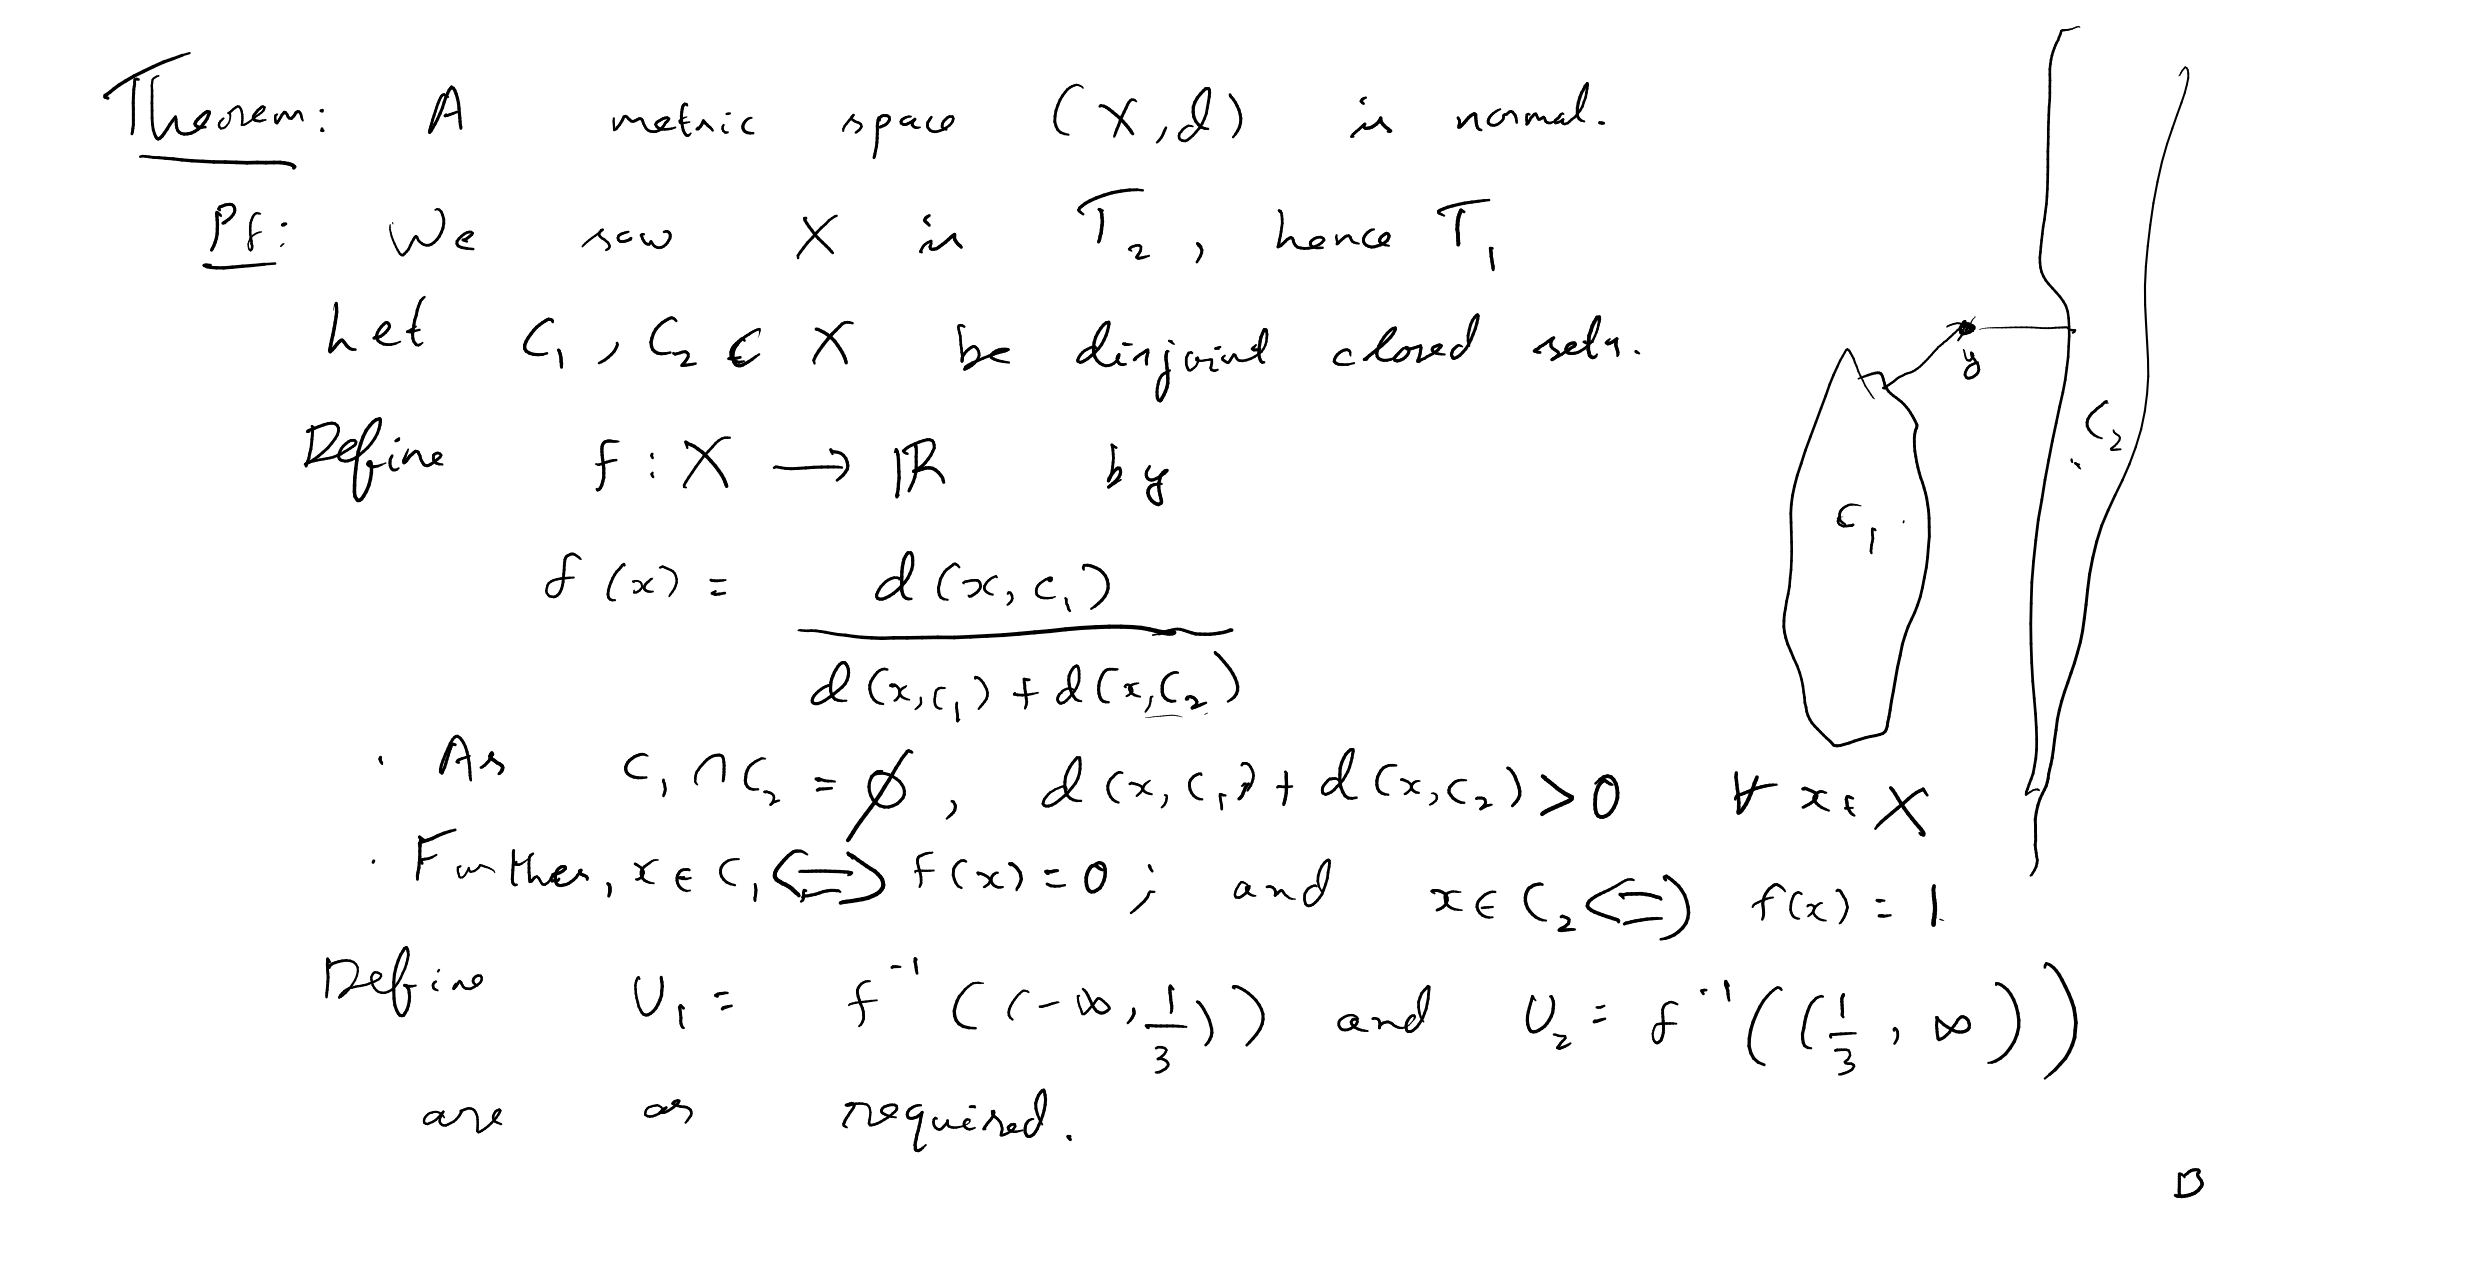 Theorem: A metric space (X,d) is normal.
Pf: We saw X is T₂, hence T₁
Let C₁, C₂ ⊂ X be disjoint closed sets.
Define f : X → ℝ by
f(x) = d(x,C₁)
d(x,C₁) + d(x,C₂)
· As C₁ ∩ C₂ = ∅, d(x,C₁) + d(x,C₂) > 0 ∀ x ∈ X
· Further, x ∈ C₁ ⇔ f(x) = 0; and x ∈ C₂ ⇔ f(x) = 1
Define U₁ = f⁻¹((-∞, 1/3)) and U₂ = f⁻¹((1/3, ∞))
are as required.
y
C₂
C₁